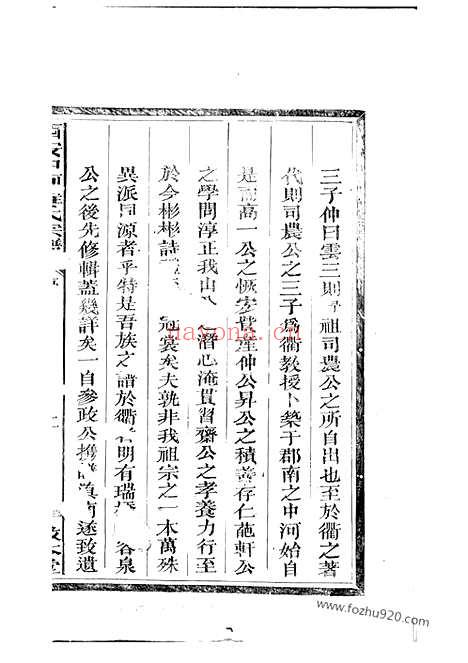 三子仲曰雲三則祖司農公之所自出也至於衢之著
代則司農公之三子爲衢教授卜築于郡南之中河始自
是而高一公之恢宏仲公昇公之積善存仁葩軒公
之學問淳正我山潛心淹貫習齋公之孝養力行至
於今彬彬詩冠裳矣夫孰非我祖宗之一本萬殊
異派同源者乎特是吾族之譜於衢明有瑞容泉
公之後先修輯蓋幾詳矣一自參政公遂致遺
氏宗譜
nayona.cn
www.fozhu920.com